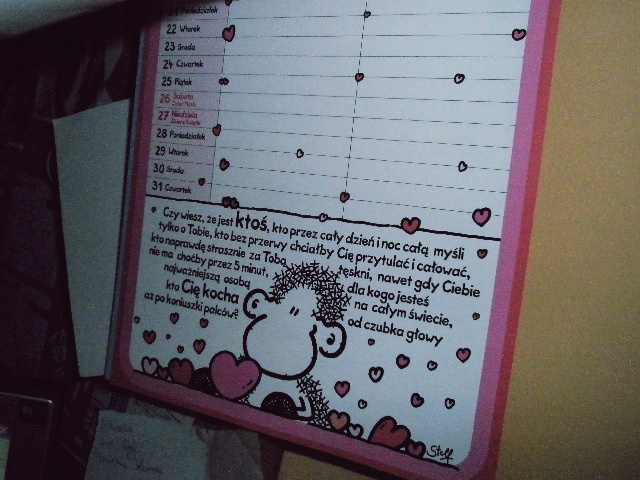 21 Poniedziałek
22 Wtorek
23 Środa
24 Czwartek
25 Piątek
26 Sobota
27 Niedziela
28 Poniedziałek
29 Wtorek
30 Środa
31 Czwartek
Czy wiesz, że jest ktoś, kto przez cały dzień i noc całą myśli
tylko o Tobie, kto bez przerwy chciałby Cię przytulać i całować,
kto naprawdę strasznie za Tobą tęskni, nawet gdy Ciebie
nie ma choćby przez 5 minut, dla kogo jesteś
najważniejszą osobą na całym świecie,
kto Cię kocha od czubka głowy
aż po koniuszki palców?
Steff